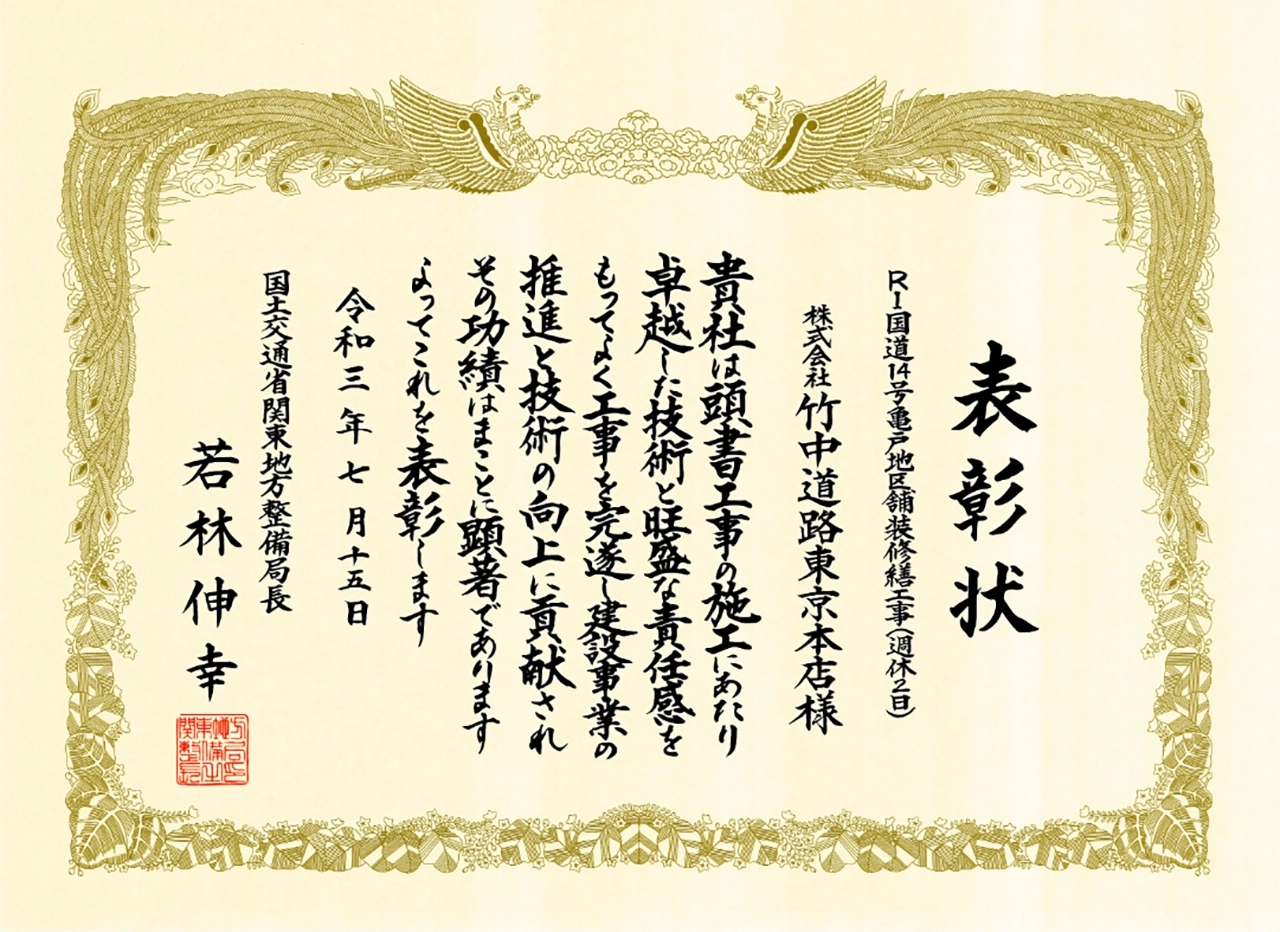 表彰状
R1国道14号亀戸地区舗装修繕工事(週休2日)
株式会社 竹中道路東京本店様
貴社は頭書工事の施工にあたり
卓越した技術と旺盛な責任感を
もってよく工事を完遂し建設事業の
推進と技術の向上に貢献され
その功績はまことに顕著であります
よってこれを表彰します
令和三年七月十五日
国土交通省関東地方整備局長
若林伸幸